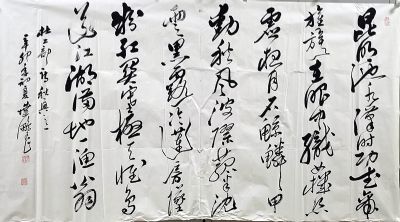 昆明池水漢時功武帝
旌旗在眼中織女機絲
虛夜月石鯨鱗甲
動秋風波漂菰米沉
雲黑露冷蓮房墜
粉紅關塞極天惟鳥
道江湖滿地一漁翁
杜工部秋興之
辛卯年初夏